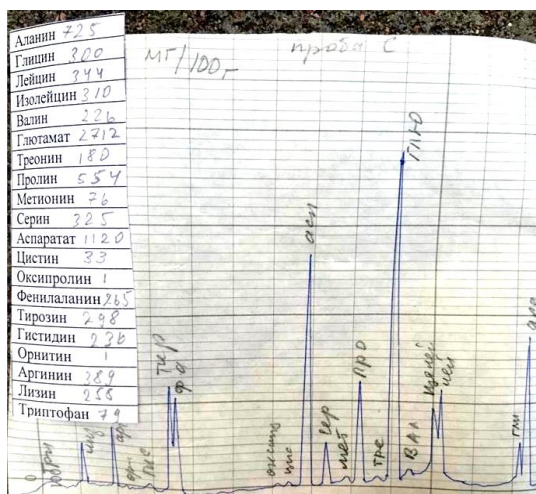 Аланин 725
Глицин 300
Лейцин 344
Изолейцин 310
Валин 226
Глютамат 2712
Треонин 180
Пролин 554
Метионин 76
Серин 325
Аспаратат 1120
Цистин 33
Оксипролин 1
Фенилаланин 265
Тирозин 298
Гистидин 236
Орнитин 1
Аргинин 389
Лизин 255
Триптофан 79
мг/100г
проба С
О
лиз
арг
орн
гис
тир
фа
цис
асп
сер
мет
про
тре
глю
вал
лей
гли
ала